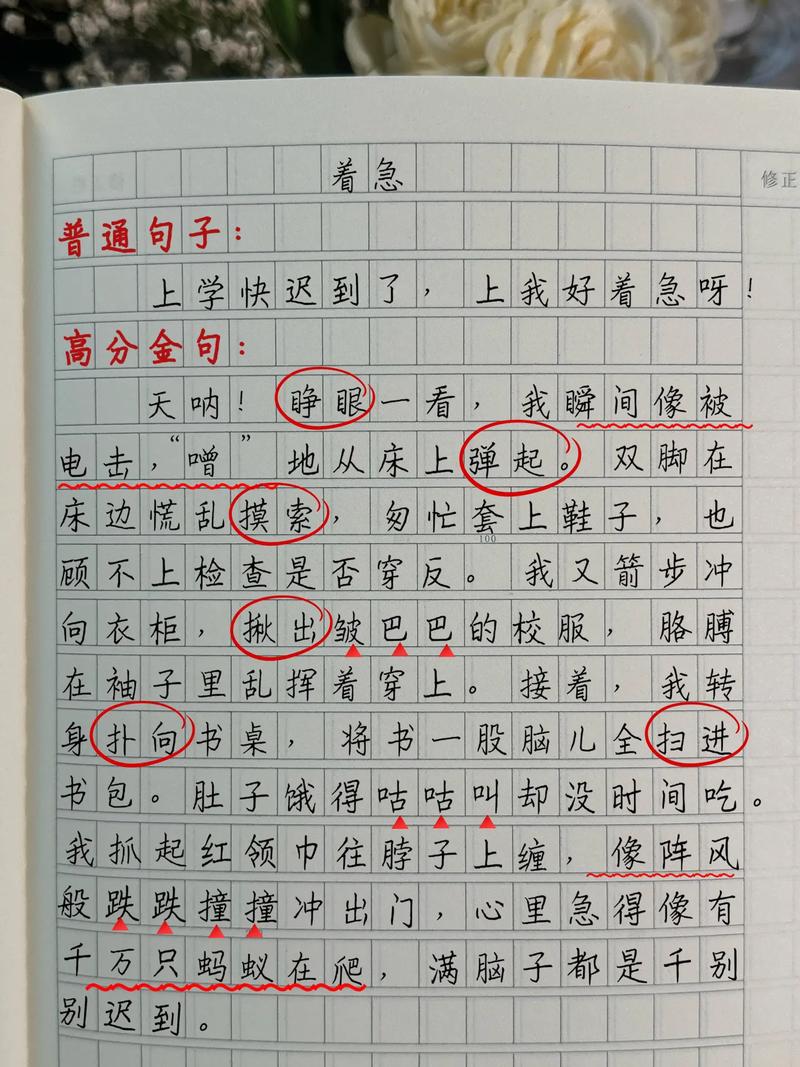 着急
修正
普通句子：
上学快迟到了，上我好着急呀！
高分金句：
天呐！睁眼一看，我瞬间像被
电击，“噌”地从床上弹起。双脚在
床边慌乱摸索，匆忙套上鞋子，也
100
顾不上检查是否穿反。我又箭步冲
向衣柜，揪出皱巴巴的校服，胳膊
在袖子里乱挥着穿上。接着，我转
身扑向书桌，将书一股脑儿全扫进
书包。肚子饿得咕咕叫却没时间吃。
我抓起红领巾往脖子上缠，像阵风
般跌跌撞撞冲出门，心里急得像有
千万只蚂蚁在爬，满脑子都是千别
别迟到。